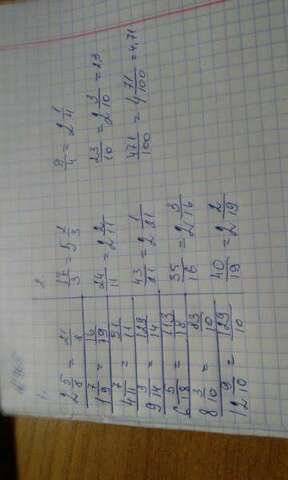 1.
2 5/8 = 21/8
4 7/11 = 51/11
9 3/14 = 129/14
6 5/18 = 113/18
8 3/10 = 83/10
12 9/10 = 129/10
2.
17/3 = 5 2/3
24/11 = 2 2/11
43/21 = 2 1/21
35/16 = 2 3/16
40/19 = 2 2/19
9/4 = 2 1/4
23/10 = 2 3/10 = 2,3
471/100 = 4 71/100 = 4,71